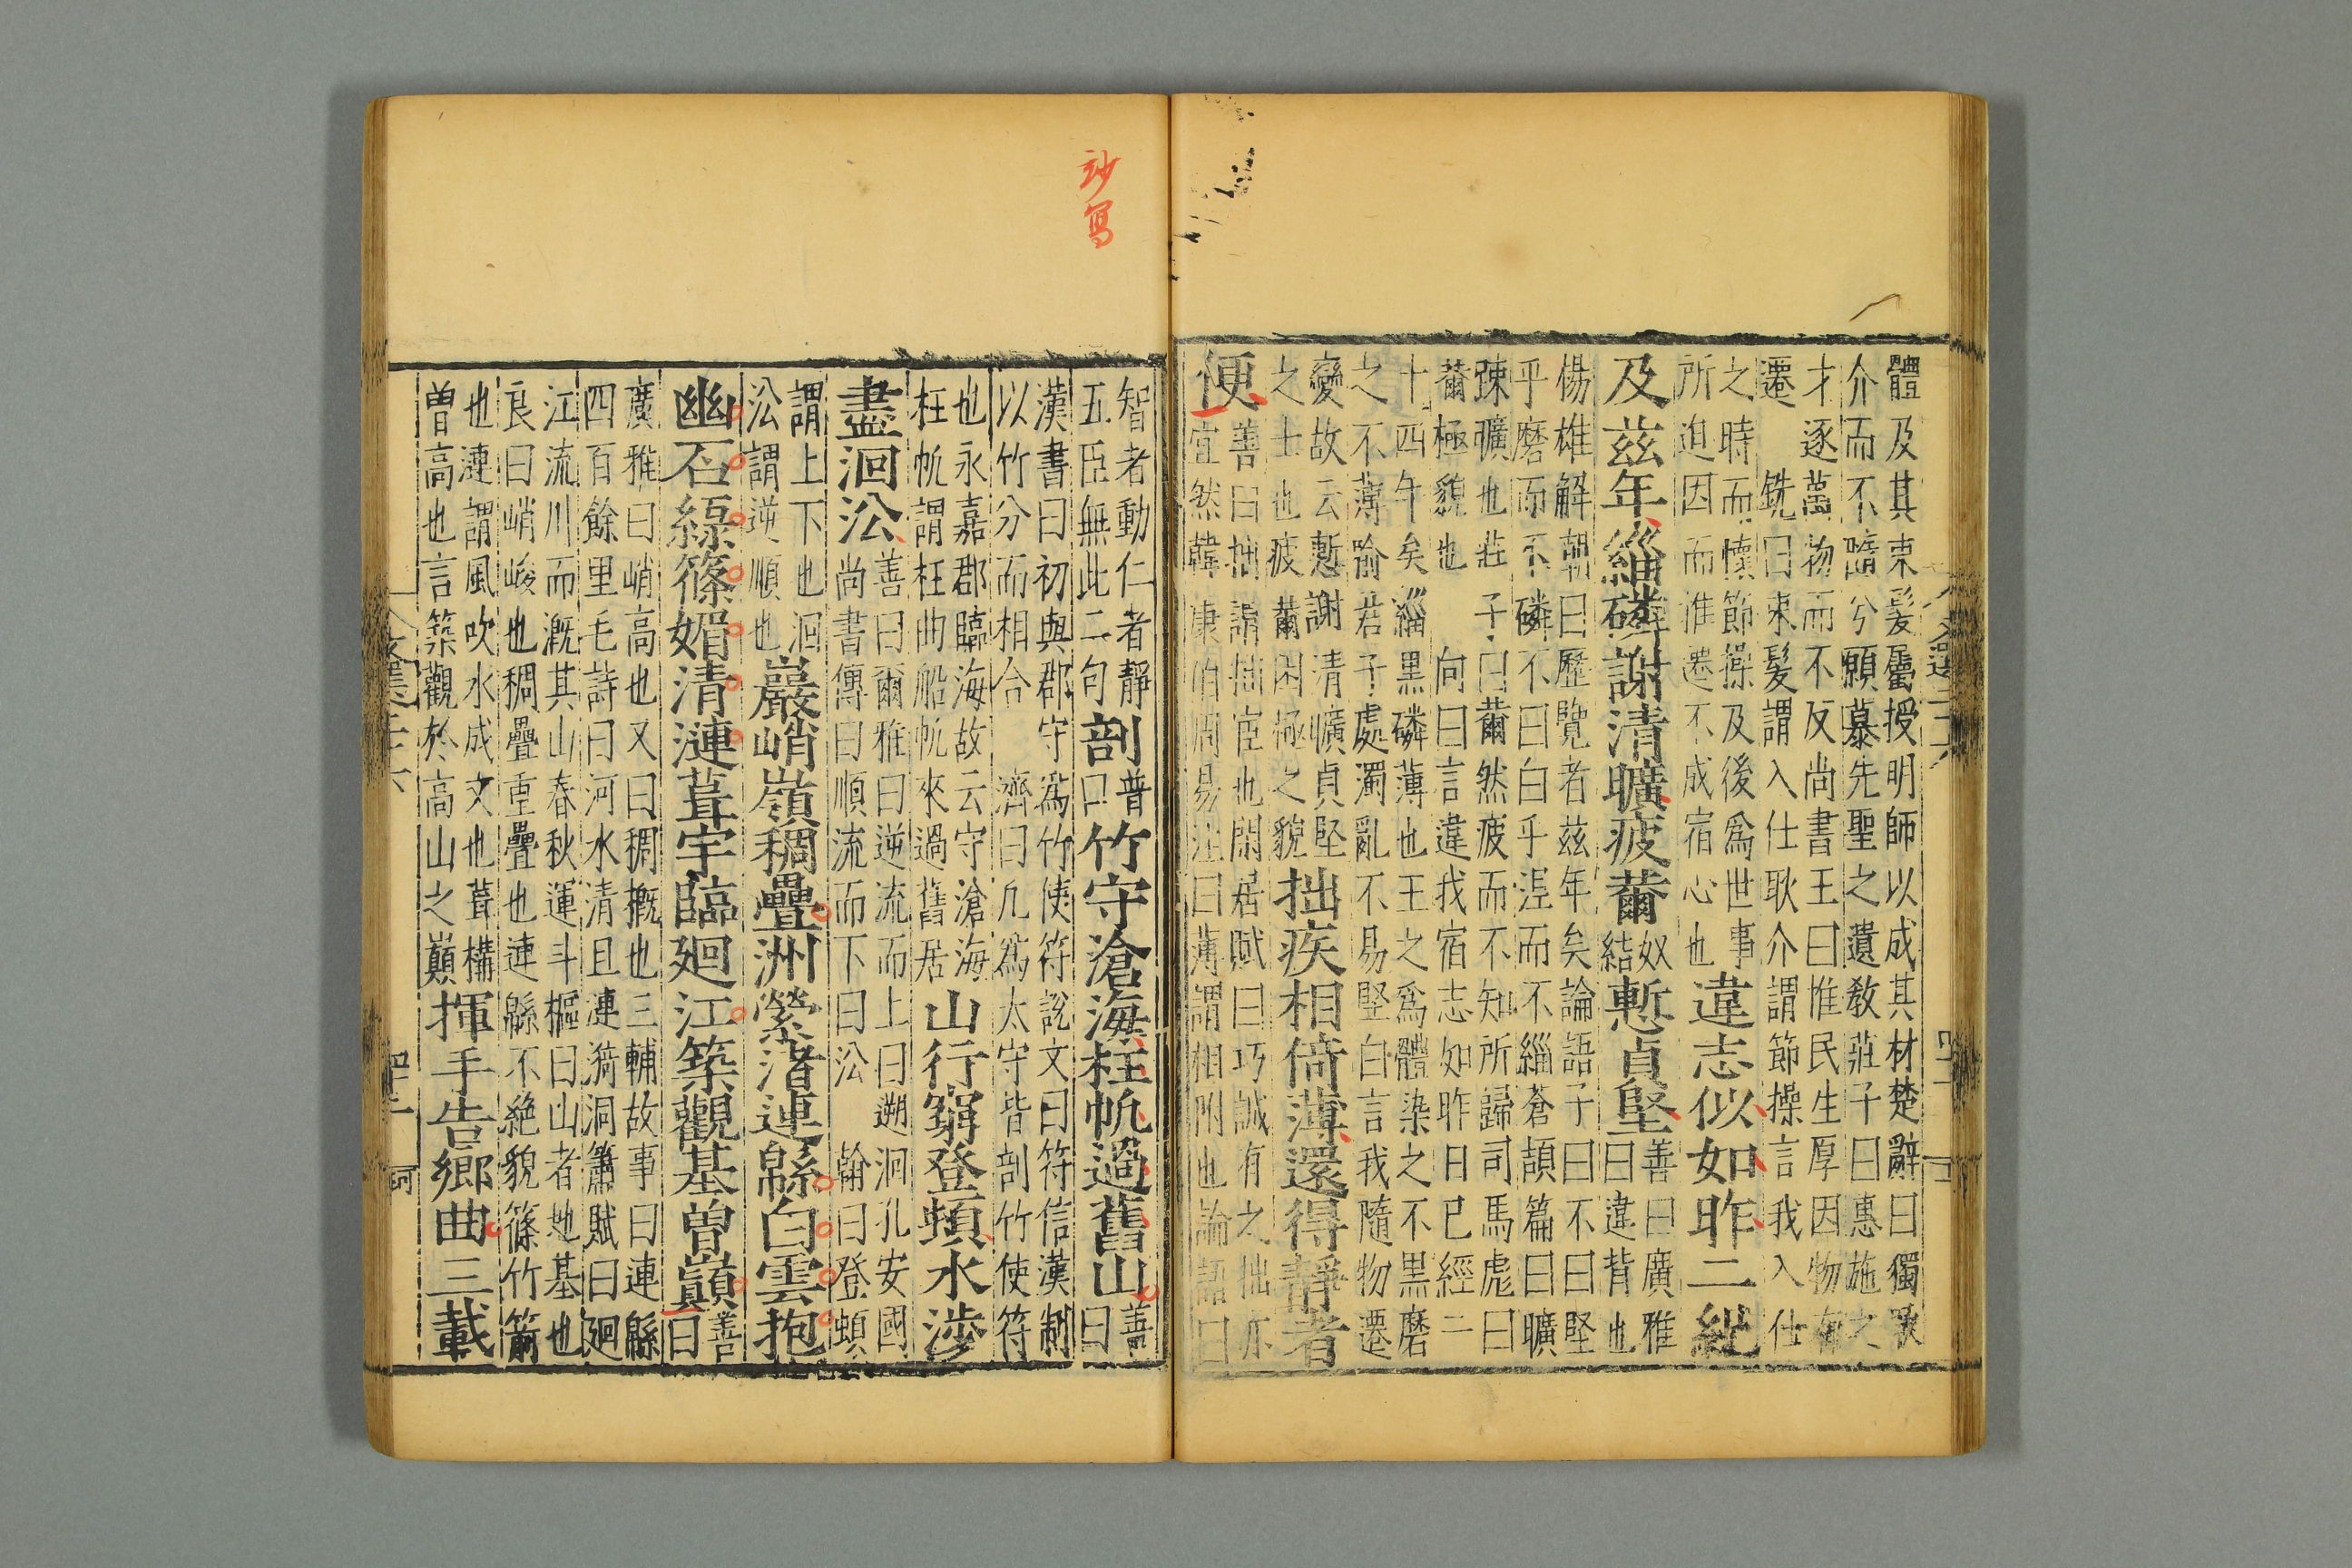 體及其束髮屬授明師以成其材楚辭曰獨耿
介而不隨兮願慕先聖之遺教莊子曰惠施之
才逐萬物而不反尚書王曰惟民生厚因物有
遷　銑曰束髮謂入仕耿介謂節操言我入仕
之時而懷節操及後爲世事
所迫因而推遷不成宿心也
違志似如昨二紀
及茲年緇磷謝清曠疲薾
奴
結
慙貞堅
善曰廣雅
曰違背也
楊雄解朝曰歷覽者茲年矣論語子曰不曰堅
乎磨而不磷不曰白乎涅而不緇蒼頡篇曰曠
踈曠也莊子曰薾然疲而不知所歸司馬彪曰
薾極貌也　向曰言違我宿志如昨日已經二
十四年矣緇黑磷薄也王之爲體染之不黒磨
之不薄喻君子處濁亂不易堅白言我隨物遷
變故云慙謝清曠貞堅
之士也疲薾困極之貌
拙疾相倚薄還得靜者
便
善曰拙謂拙宦也閑居賦曰巧誠有之拙亦
宜然韓康伯周易注曰薄謂相附也論語曰
文選二六
四十二
沙寫
智者動仁者靜
五臣無此二句
剖
普
口
竹守滄海枉帆過舊山
善
曰
漢書曰初與郡守爲竹使符說文曰符信漢制
以竹分而相合　濟曰凡爲太守皆剖竹使符
也永嘉郡臨海故云守滄海
枉帆謂枉曲船帆來過舊居
山行窮登頓水涉
盡洄沿
善曰爾雅曰逆流而上曰遡洄孔安國
尚書傳曰順流而下曰沿　翰曰登頓
謂上下也洄
沿謂逆順也
巖峭嶺稠疊洲縈渚連緜白雲抱
幽石綠篠媚清漣葺宇臨廻江築觀基曽巔
善
曰
廣雅曰峭高也又曰稠概也三輔故事曰連緜
四百餘里毛詩曰河水清且漣漪洞簫賦曰廻
江流川而溉其山春秋運斗樞曰山者地基也
良曰峭峻也稠疊重疊也連緜不絶貌篠竹箭
也漣謂風吹水成文也葺構
曽高也言築觀於高山之巔
揮手告鄉曲三載
文選二六
四十二